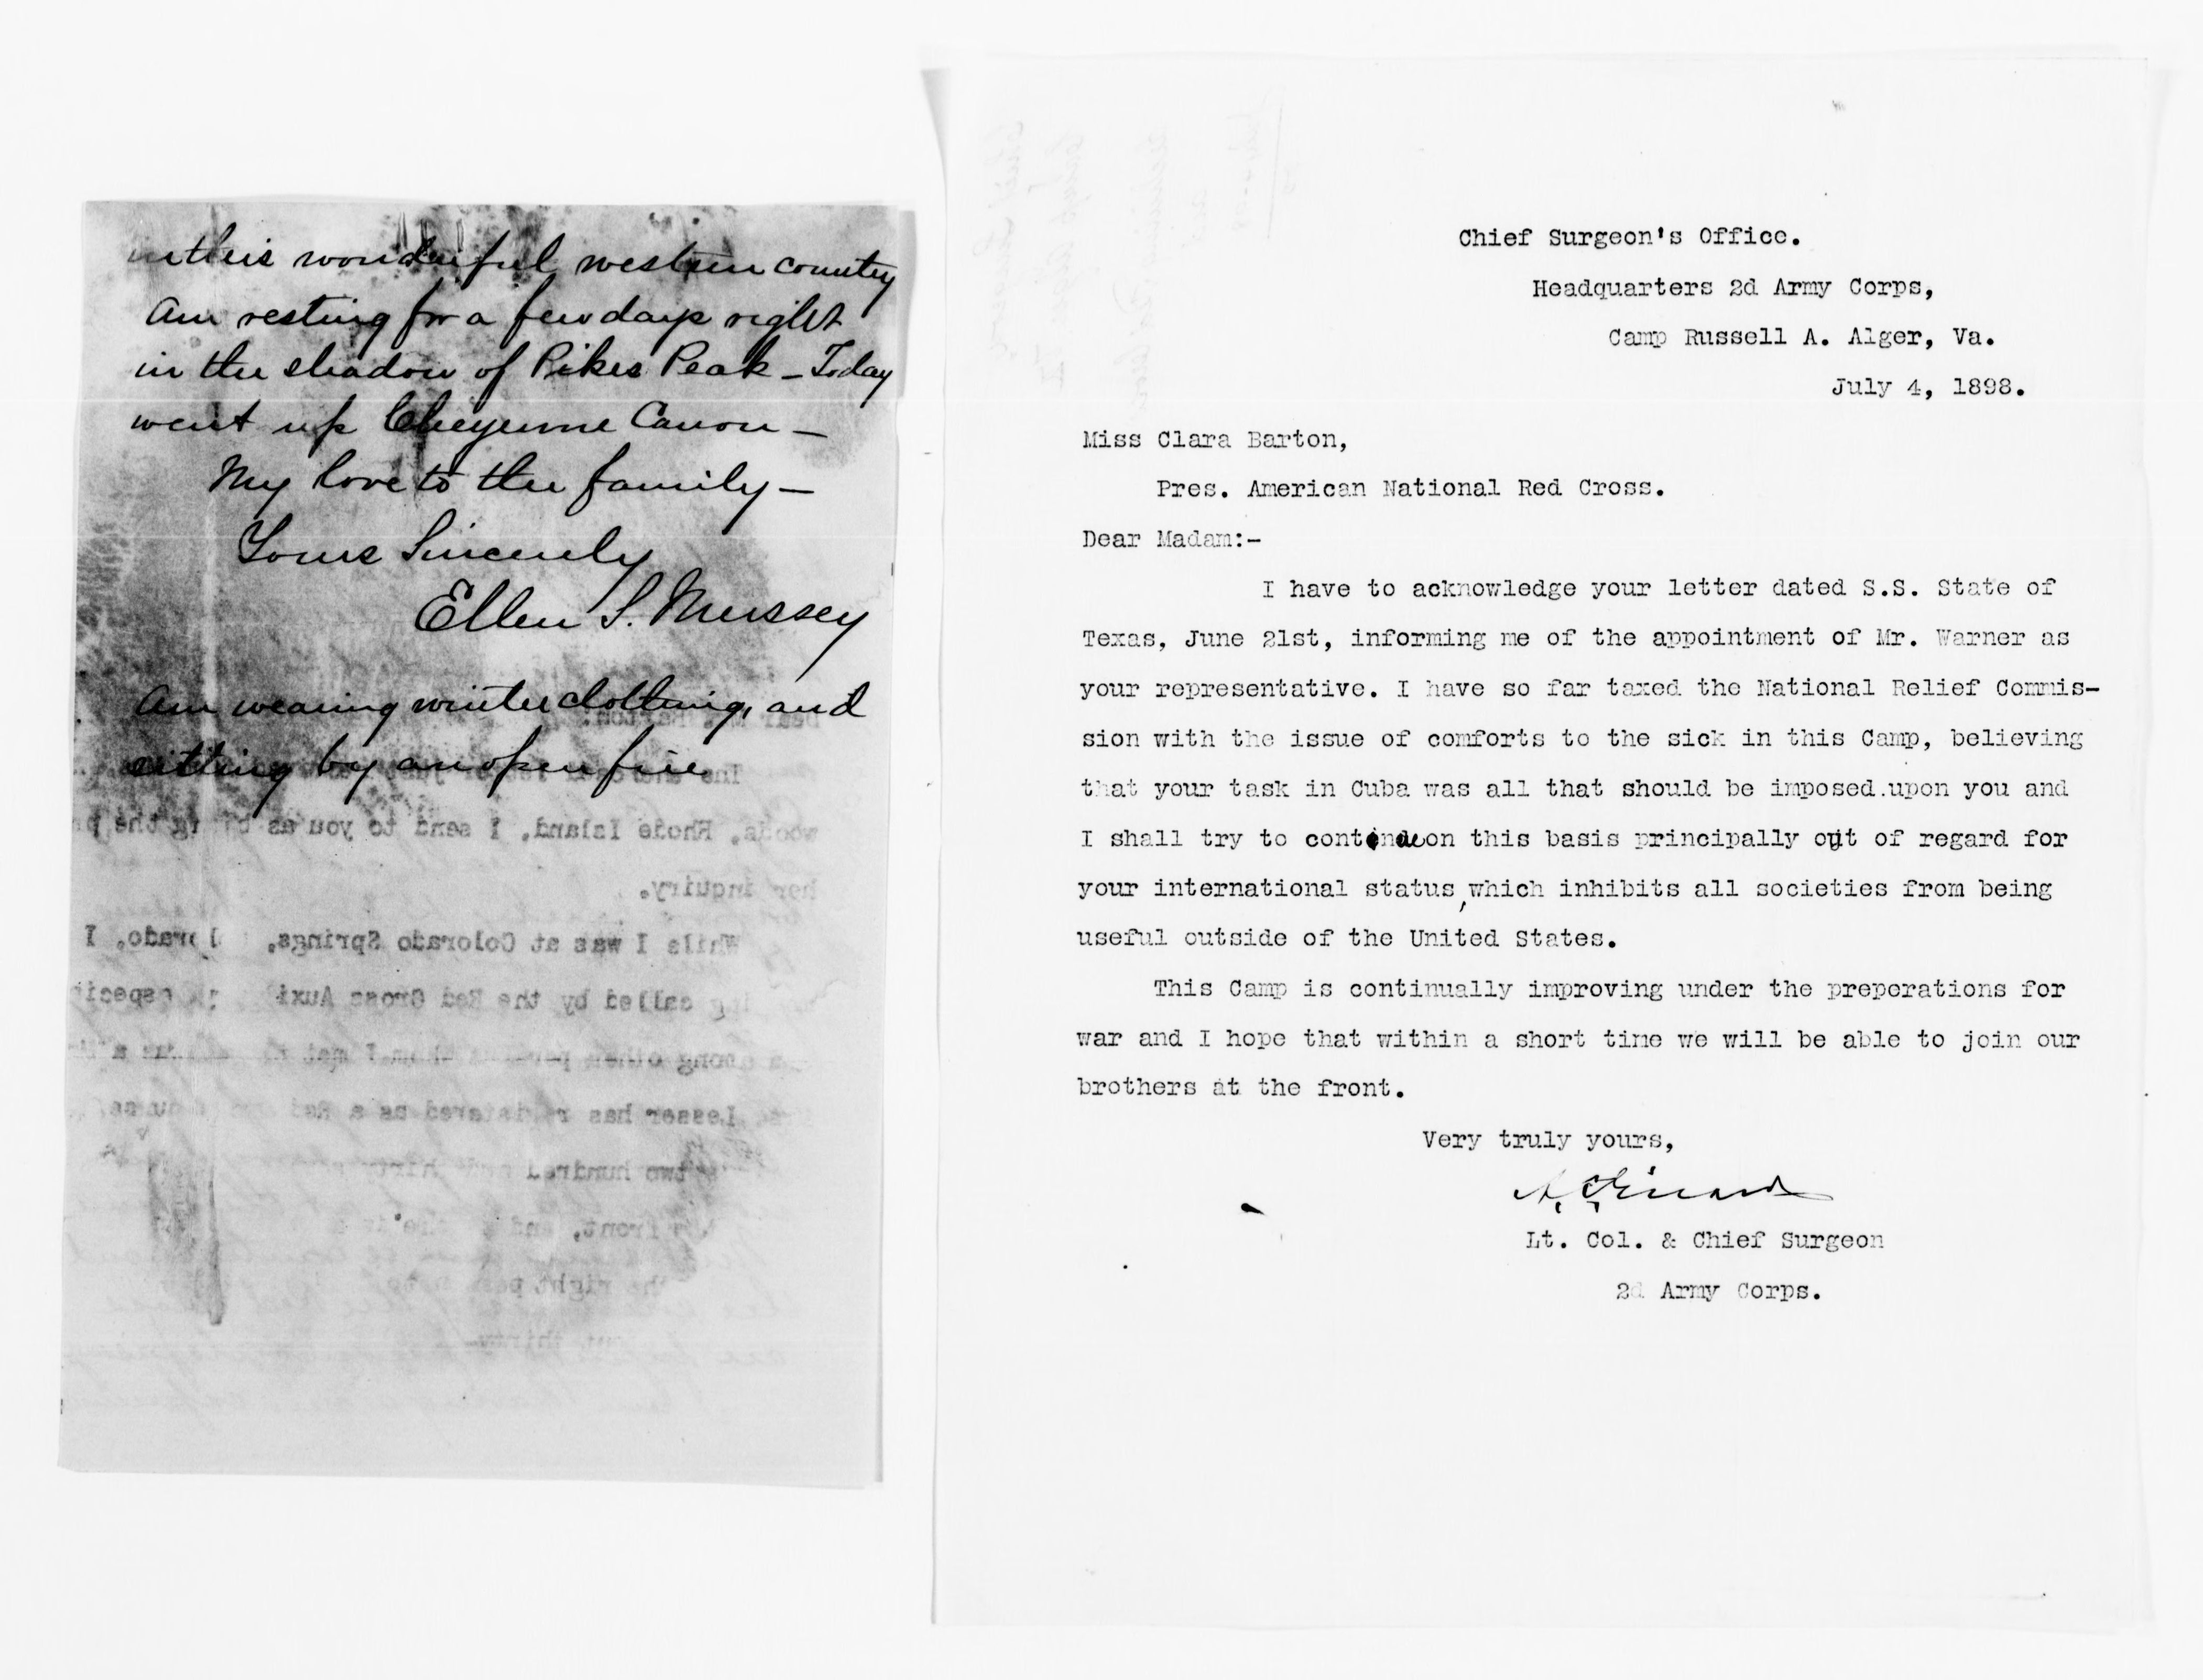 in this wonderful western country
Am resting for a few days right
in the shadow of Pikes Peak – Today
went up Cheyenne Canon –
My love to the family –
Yours Sincerely
Ellen S. Mussey
Am wearing winter clothing, and
sitting by an open fire
woods, Rhode Island, I send to you as
her inquiry.
While I was at Colorado Springs, I
called by the Red Cross
among other
Lesser has registered as a
two hundred
front, and
the right
Chief Surgeon's Office.
Headquarters 2d Army Corps,
Camp Russell A. Alger, Va.
July 4, 1898.
Miss Clara Barton,
Pres. American National Red Cross.
Dear Madam:-
I have to acknowledge your letter dated S.S. State of
Texas, June 21st, informing me of the appointment of Mr. Warner as
your representative. I have so far taxed the National Relief Commis-
sion with the issue of comforts to the sick in this Camp, believing
that your task in Cuba was all that should be imposed.upon you and
I shall try to continue on this basis principally out of regard for
your international status, which inhibits all societies from being
useful outside of the United States.
This Camp is continually improving under the preperations for
war and I hope that within a short time we will be able to join our
brothers at the front.
Very truly yours,
Lt. Col. & Chief Surgeon
2d Army Corps.